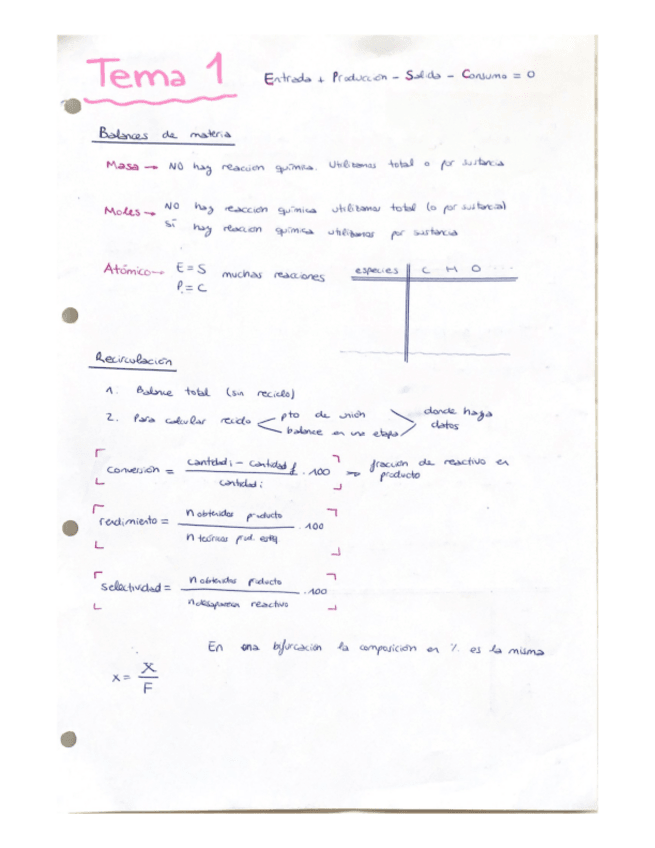 Tema 1
Entrada + Producción - Salida - Consumo = 0
Balances de materia
Masa → NO hay reacción química. Utilizamos total o por sustancia
Moles → NO hay reacción química utilizamos total (o por sustancia)
Sí hay reacción química utilizamos por sustancia
Atómico → E = S muchas reacciones
P = C
especies C H O ...
Recirculación
1. Balance total (sin reciclo)
2. Para calcular reciclo pto de unión donde haya
balance en una etapa datos
conversión = cantidad i - cantidad f / cantidad i . 100 → fracción de reactivo en producto
rendimiento = n obtenidos producto / n teóricos prod. . 100
selectividad = n obtenidos producto / n desaparecen reactivo . 100
En una bifurcación la composición en % es la misma
x = X / F